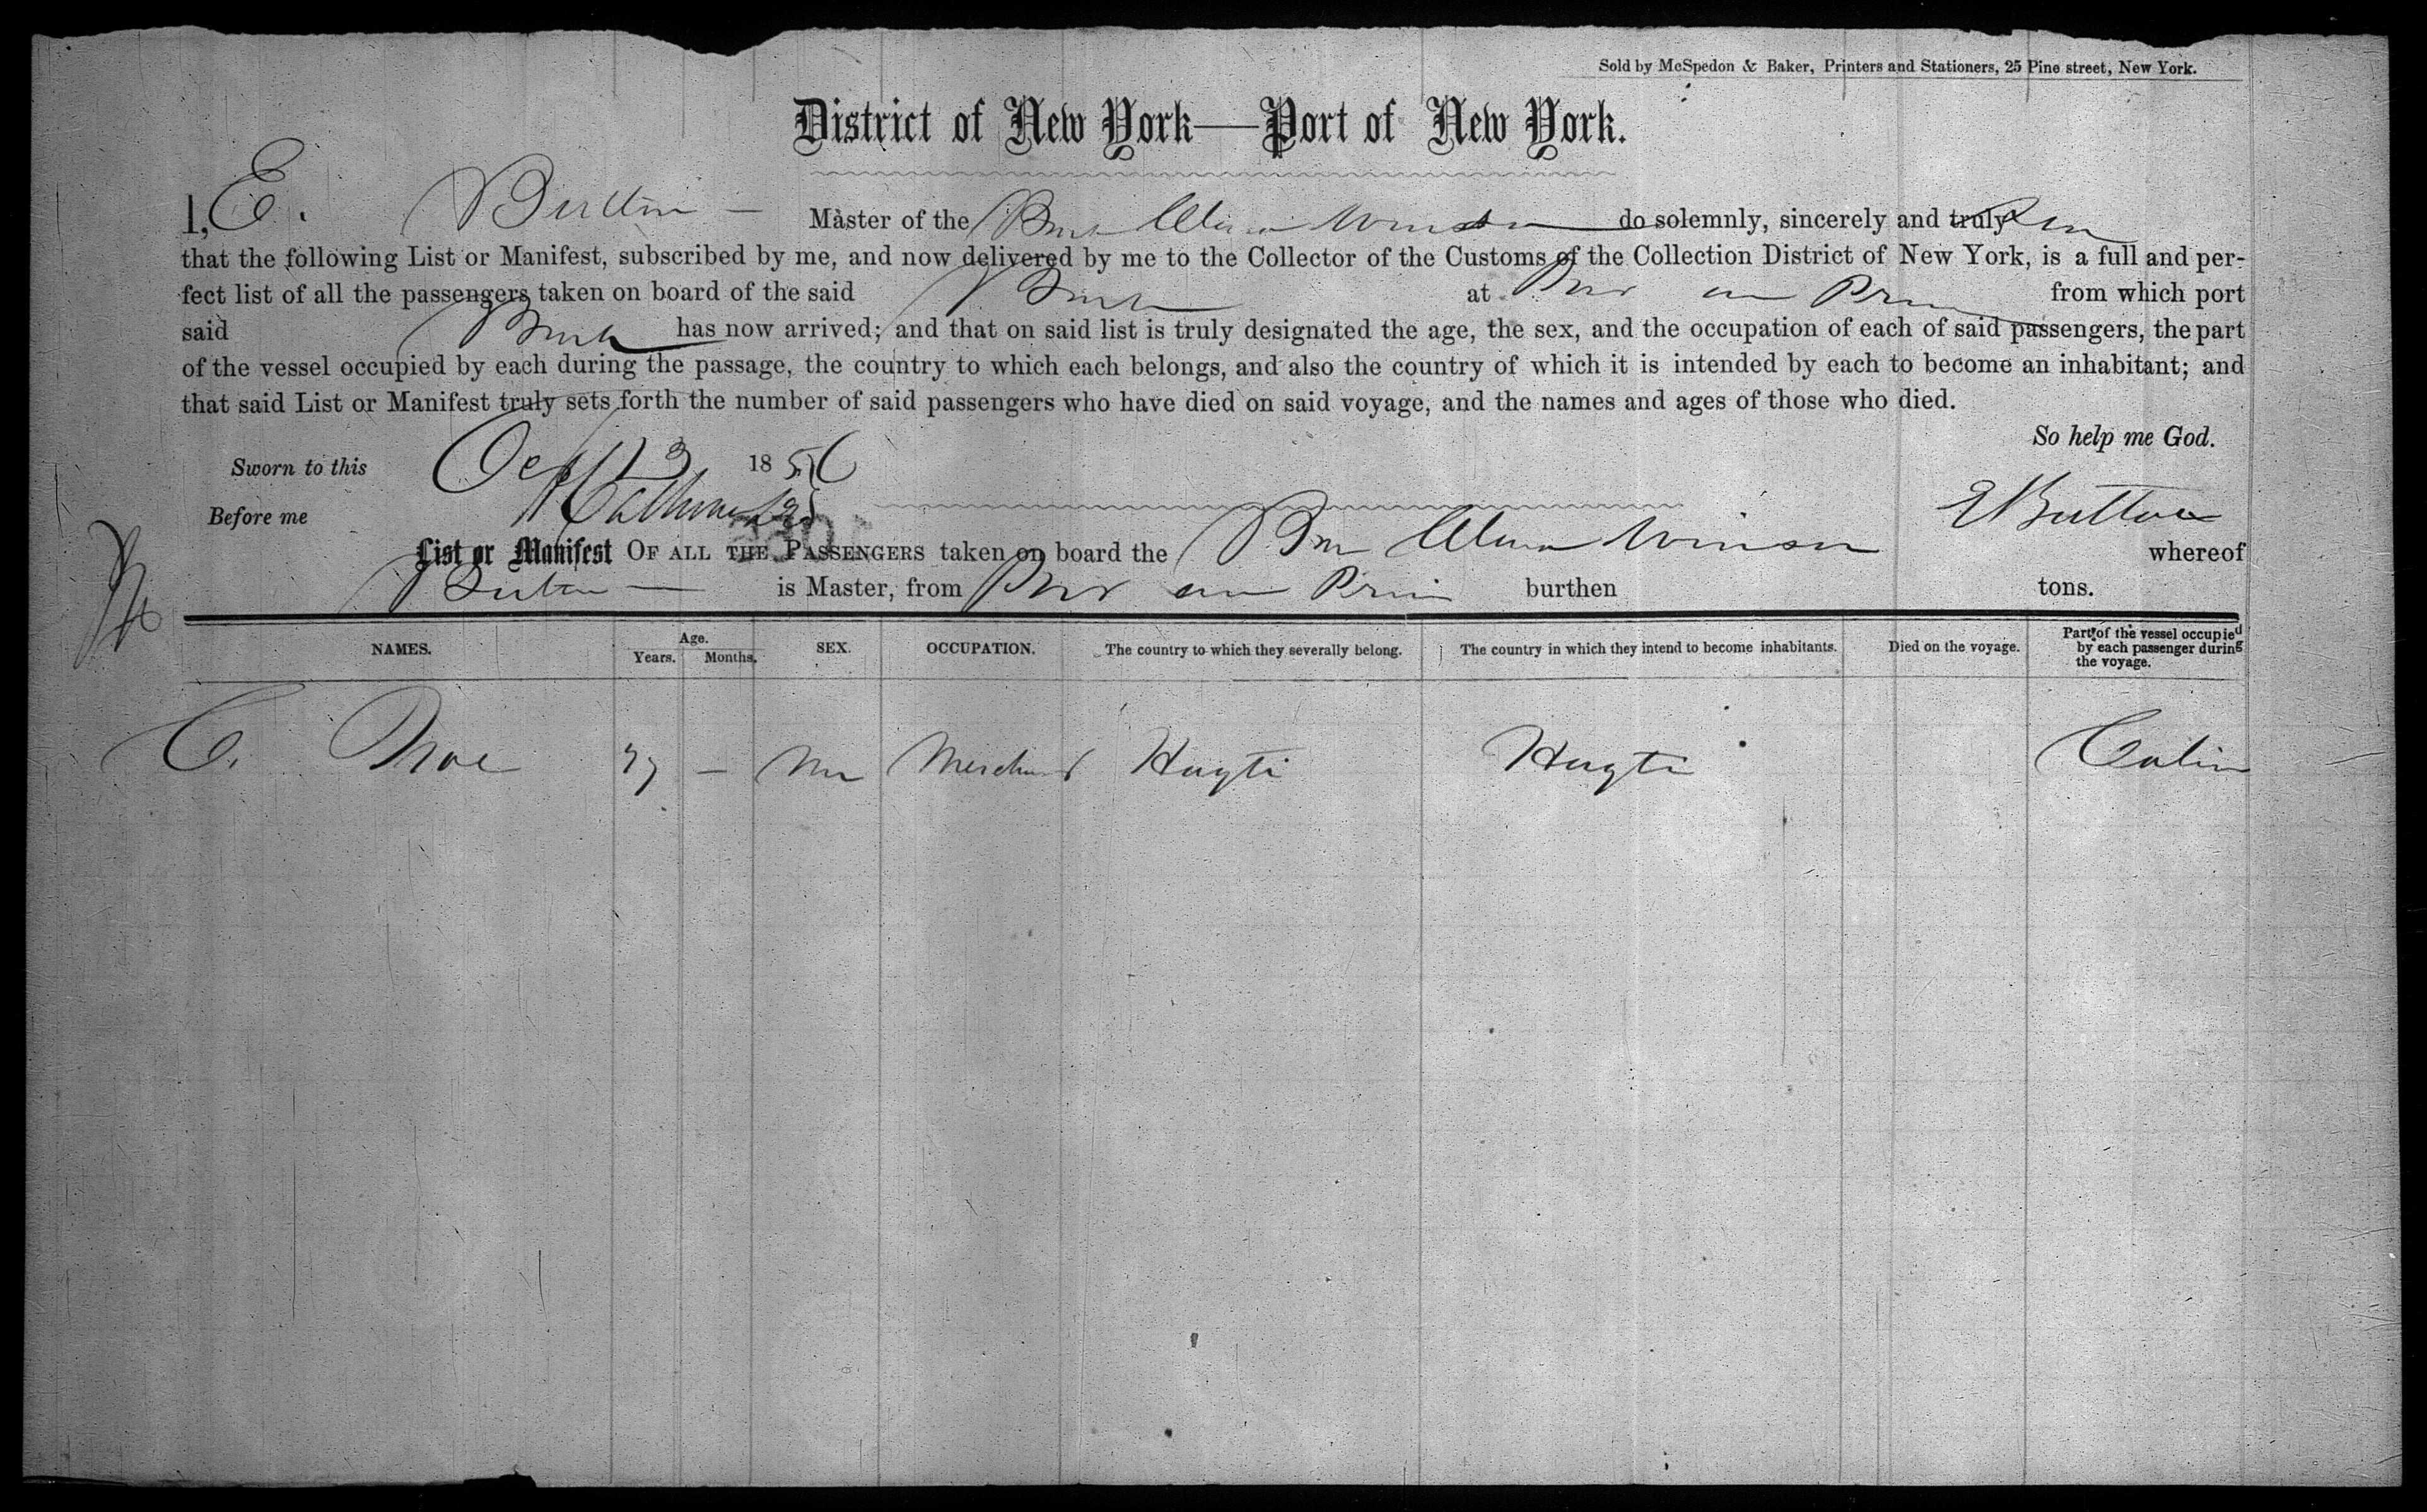 Sold by McSpedon & Baker, Printers and Stationers, 25 Pine street, New York.
District of New York—Port of New York.
I, E. Button — Master of the do solemnly, sincerely and truly
that the following List or Manifest, subscribed by me, and now delivered by me to the Collector of the Customs of the Collection District of New York, is a full and per-
fect list of all the passengers taken on board of the said at from which port
said has now arrived; and that on said list is truly designated the age, the sex, and the occupation of each of said passengers, the part
of the vessel occupied by each during the passage, the country to which each belongs, and also the country of which it is intended by each to become an inhabitant; and
that said List or Manifest truly sets forth the number of said passengers who have died on said voyage, and the names and ages of those who died.
So help me God.
Sworn to this Oct 13 1856
Before me E Button
List or Manifest OF ALL THE PASSENGERS taken on board the whereof
Button — is Master, from burthen tons.
NAMES. Age. Years. Months. SEX. OCCUPATION. The country to which they severally belong. The country in which they intend to become inhabitants. Died on the voyage. Part of the vessel occupied by each passenger during the voyage.
C. — Merchant Hayti Hayti Cabin